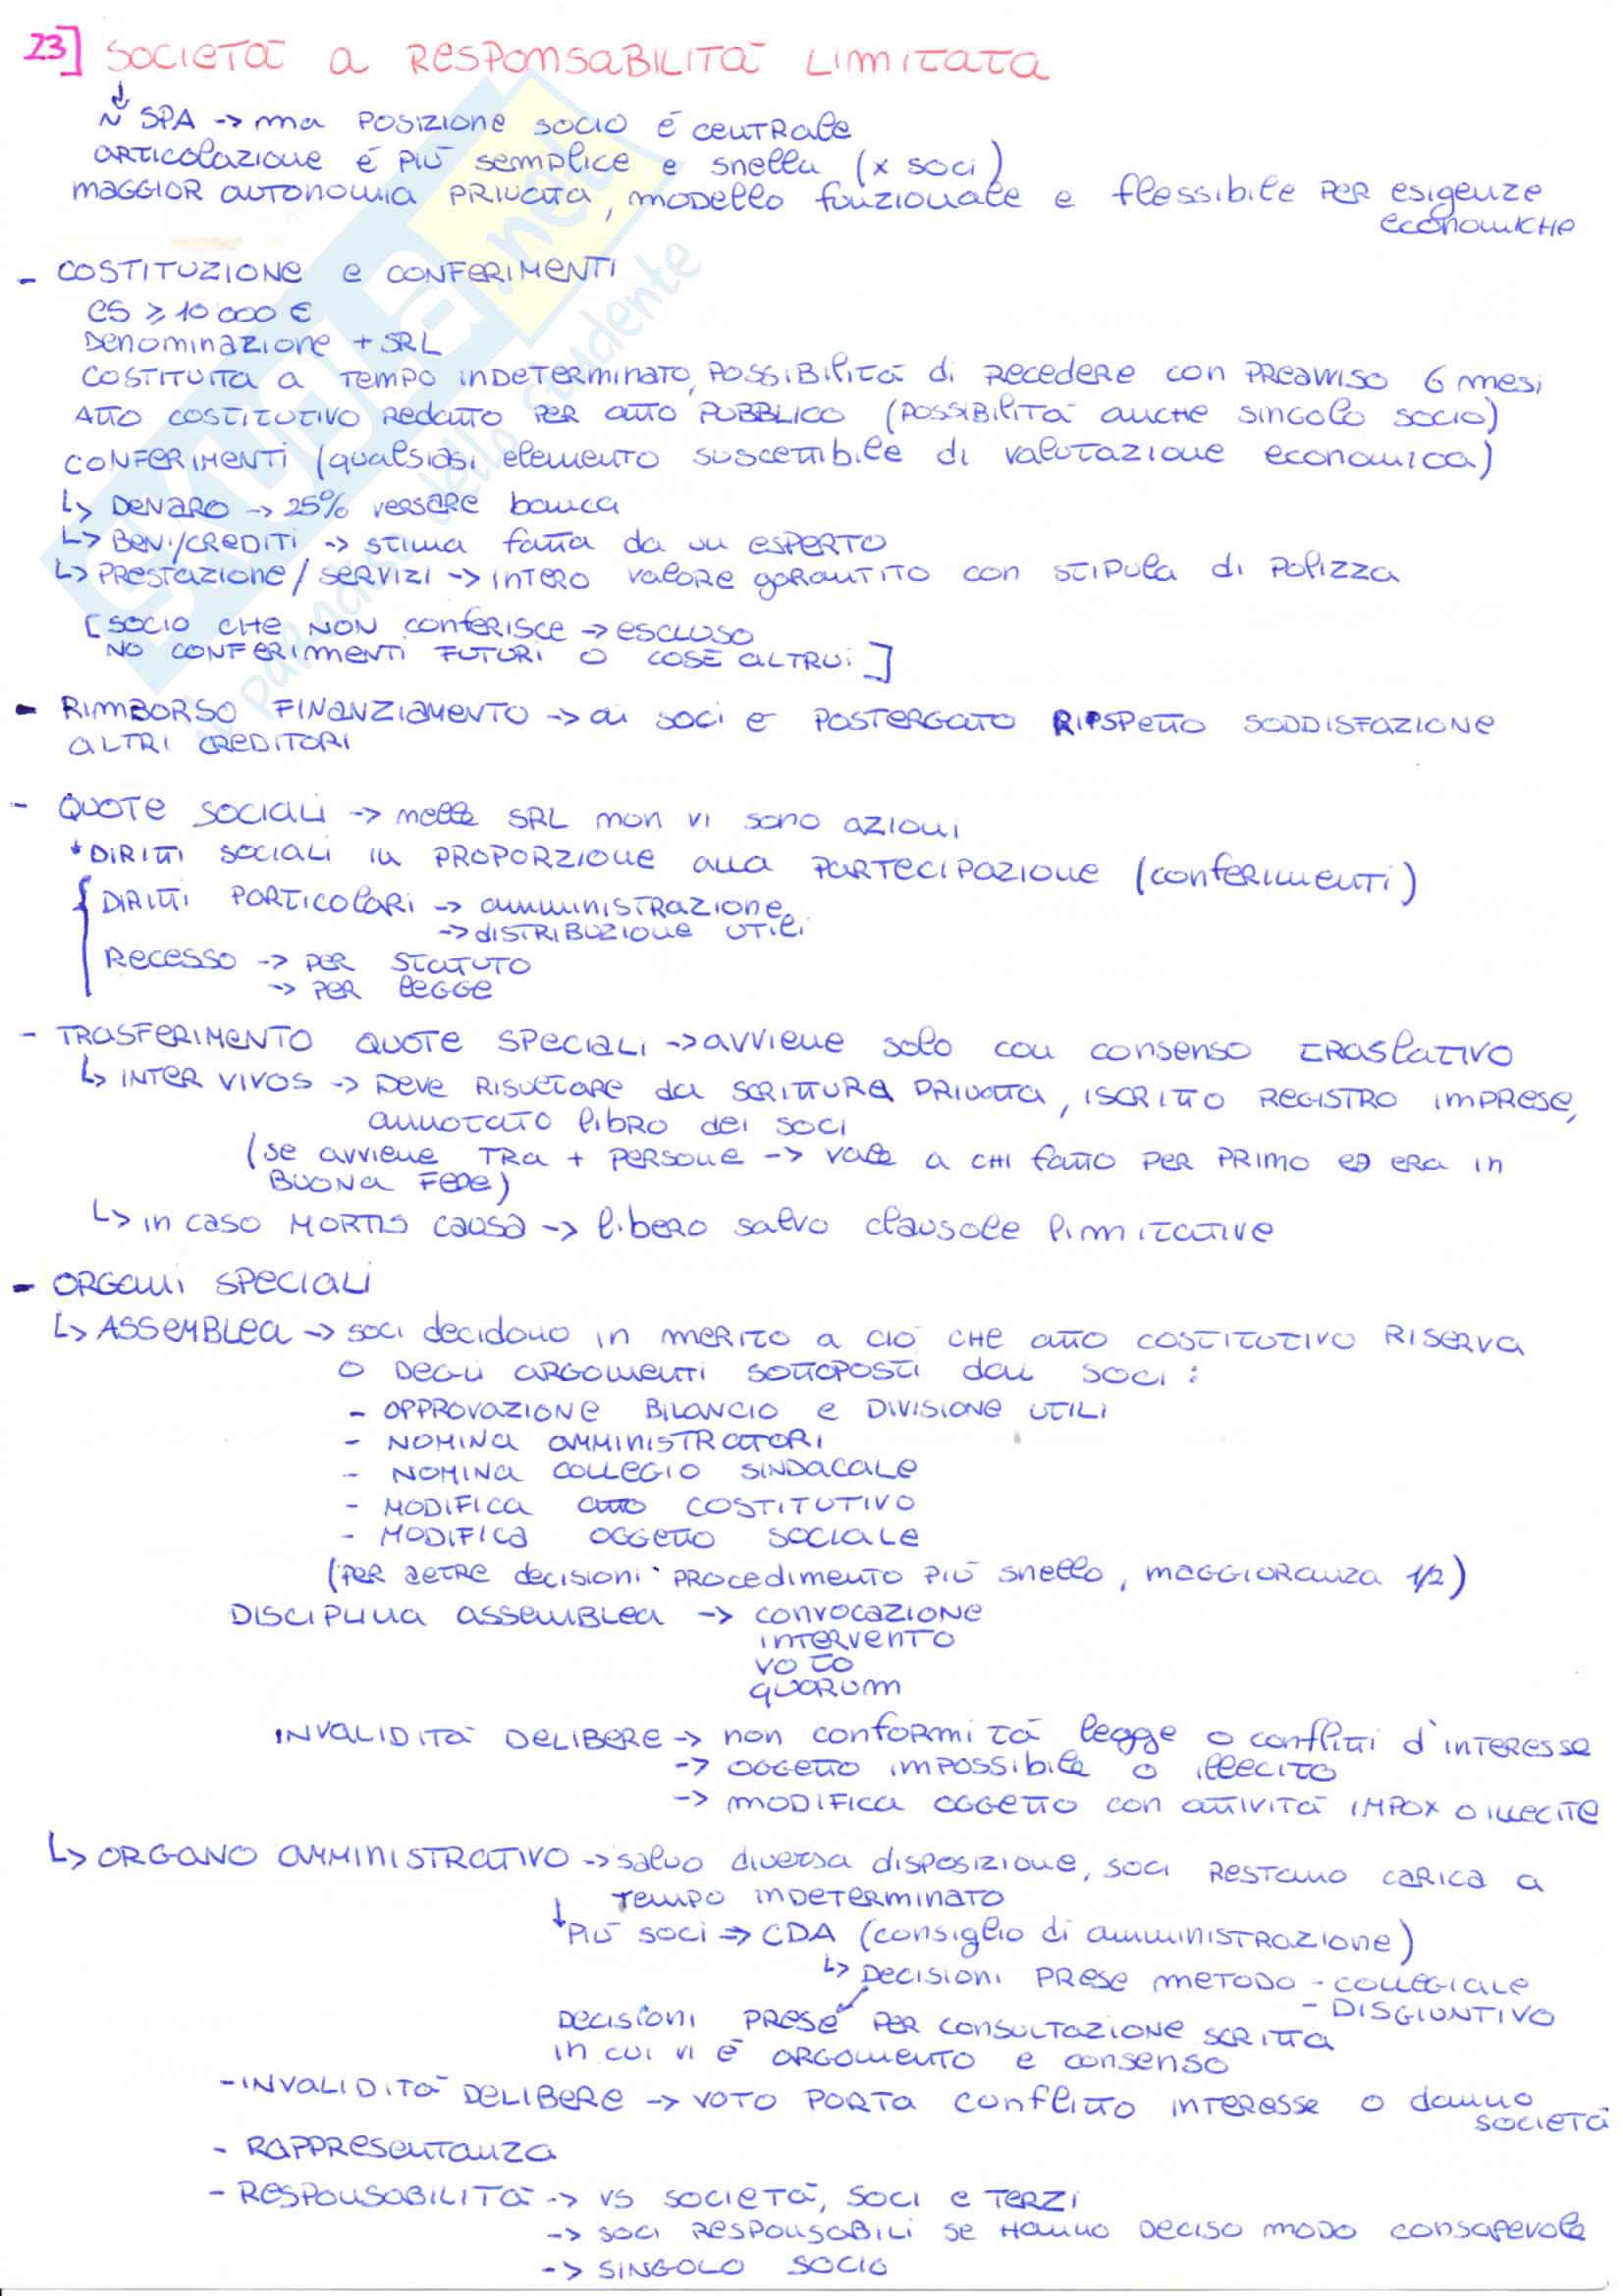 23] SOCIETÀ A RESPONSABILITÀ LIMITATA
↓
~ SPA -> ma POSIZIONE SOCIO È CENTRALE
ARTICOLAZIONE È PIÙ SEMPLICE E SNELLA (x SOCI)
MAGGIOR AUTONOMIA PRIVATA, MODELLO FUNZIONALE E FLESSIBILE PER ESIGENZE
ECONOMICHE
- COSTITUZIONE E CONFERIMENTI
CS ≥ 10 000 €
DENOMINAZIONE + SRL
COSTITUITA A TEMPO INDETERMINATO, POSSIBILITÀ di RECEDERE CON PREAVVISO 6 mesi
ATTO COSTITUTIVO REDATTO PER ATTO PUBBLICO (POSSIBILITÀ ANCHE SINGOLO SOCIO)
CONFERIMENTI (qualsiasi elemento suscettibile di valutazione economica)
↳ DENARO -> 25% VERSARE BANCA
↳ BENI/CREDITI -> STIMA FATTA DA UN ESPERTO
↳ PRESTAZIONE/SERVIZI -> INTERO VALORE GARANTITO CON STIPULA di POLIZZA
[SOCIO CHE NON CONFERISCE -> ESCLUSO
NO CONFERIMENTI FUTURI O COSE ALTRUI]
- RIMBORSO FINANZIAMENTO -> ai SOCI È POSTERGATO RIPSPETTO SODDISFAZIONE
ALTRI CREDITORI
- QUOTE SOCIALI -> nelle SRL non vi sono AZIONI
* DIRITTI SOCIALI IN PROPORZIONE ALLA PARTECIPAZIONE (CONFERIMENTI)
{ DIRITTI PARTICOLARI -> AMMINISTRAZIONE
-> DISTRIBUZIONE UTILI
RECESSO -> PER STATUTO
-> PER LEGGE
- TRASFERIMENTO QUOTE SPECIALI -> AVVIENE SOLO CON CONSENSO TRASLATIVO
↳ INTER VIVOS -> DEVE RISULTARE DA SCRITTURA PRIVATA, ISCRITTO REGISTRO IMPRESE,
ANNOTATO LIBRO DEI SOCI
(SE AVVIENE TRA + PERSONE -> VALE A CHI FATTO PER PRIMO ED ERA IN
BUONA FEDE)
↳ IN CASO MORTIS CAUSA -> LIBERO SALVO CLAUSOLE LIMITATIVE
- ORGANI SPECIALI
↳ ASSEMBLEA -> SOCI decidono IN MERITO A CIÒ CHE ATTO COSTITUTIVO RISERVA
O DEGLI ARGOMENTI SOTTOPOSTI DAI SOCI:
- APPROVAZIONE BILANCIO E DIVISIONE UTILI
- NOMINA AMMINISTRATORI
- NOMINA COLLEGIO SINDACALE
- MODIFICA ATTO COSTITUTIVO
- MODIFICA OGGETTO SOCIALE
(PER ALTRE decisioni PROCEDIMENTO PIÙ SNELLO, MAGGIORANZA 1/2)
DISCIPLINA ASSEMBLEA -> CONVOCAZIONE
INTERVENTO
VOTO
QUORUM
INVALIDITÀ DELIBERE -> NON CONFORMITÀ LEGGE O CONFLITTI d'INTERESSE
-> OGGETTO IMPOSSIBILE O ILLECITO
-> MODIFICA OGGETTO CON ATTIVITÀ IMPOX O ILLECITE
↳ ORGANO AMMINISTRATIVO -> SALVO DIVERSA DISPOSIZIONE, SOCI RESTANO CARICA A
TEMPO INDETERMINATO
↓ PIÙ SOCI => CDA (consiglio di AMMINISTRAZIONE)
↳ DECISIONI PRESE METODO - COLLEGIALE
- DISGIUNTIVO
DECISIONI PRESE PER CONSULTAZIONE SCRITTA
IN CUI VI È ARGOMENTO E CONSENSO
- INVALIDITÀ DELIBERE -> VOTO PORTA CONFLITTO INTERESSE O DANNO
SOCIETÀ
- RAPPRESENTANZA
- RESPONSABILITÀ -> VS SOCIETÀ, SOCI E TERZI
-> SOCI RESPONSABILI SE HANNO DECISO MODO CONSAPEVOLE
-> SINGOLO SOCIO
SKUOLA.net
il paradiso dello studente